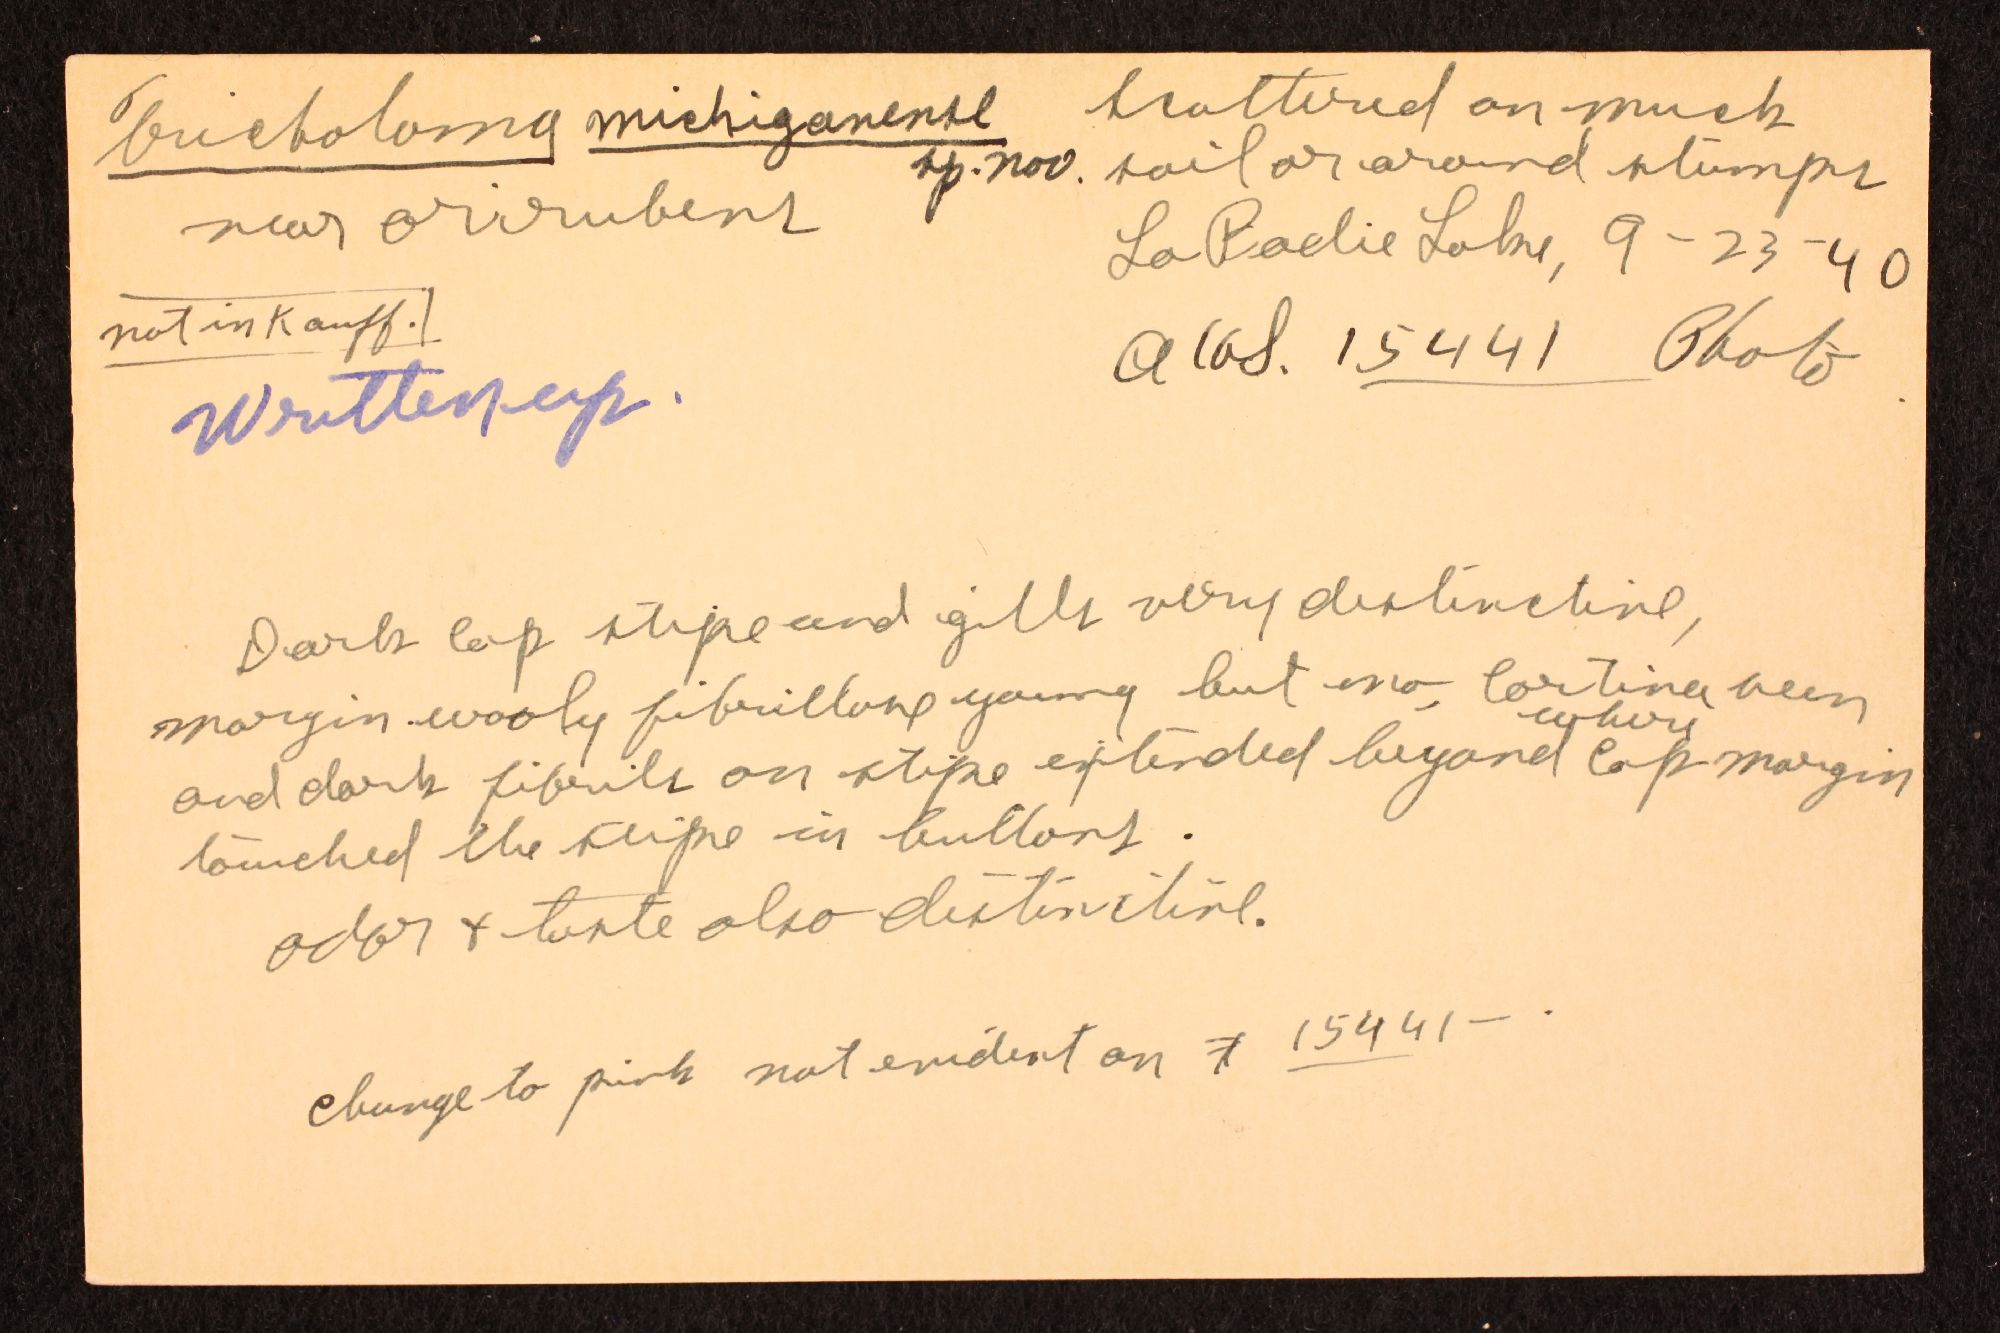 Tricholoma michiganense
sp. nov.
near orirubens
not in Kauff.
Written up.
scattered on muck
soil or around stumps
La Radie Lake, 9-23-40
AHS. 15441 Photo
Dark cap stipe and gills very distinctive,
margin wooly fibrillose young but no cortina seen
and dark fibrils on stipe extended beyond where cap margin
touched the stipe in buttons.
odor + taste also distinctive.
change to pink not evident on # 15441 - .